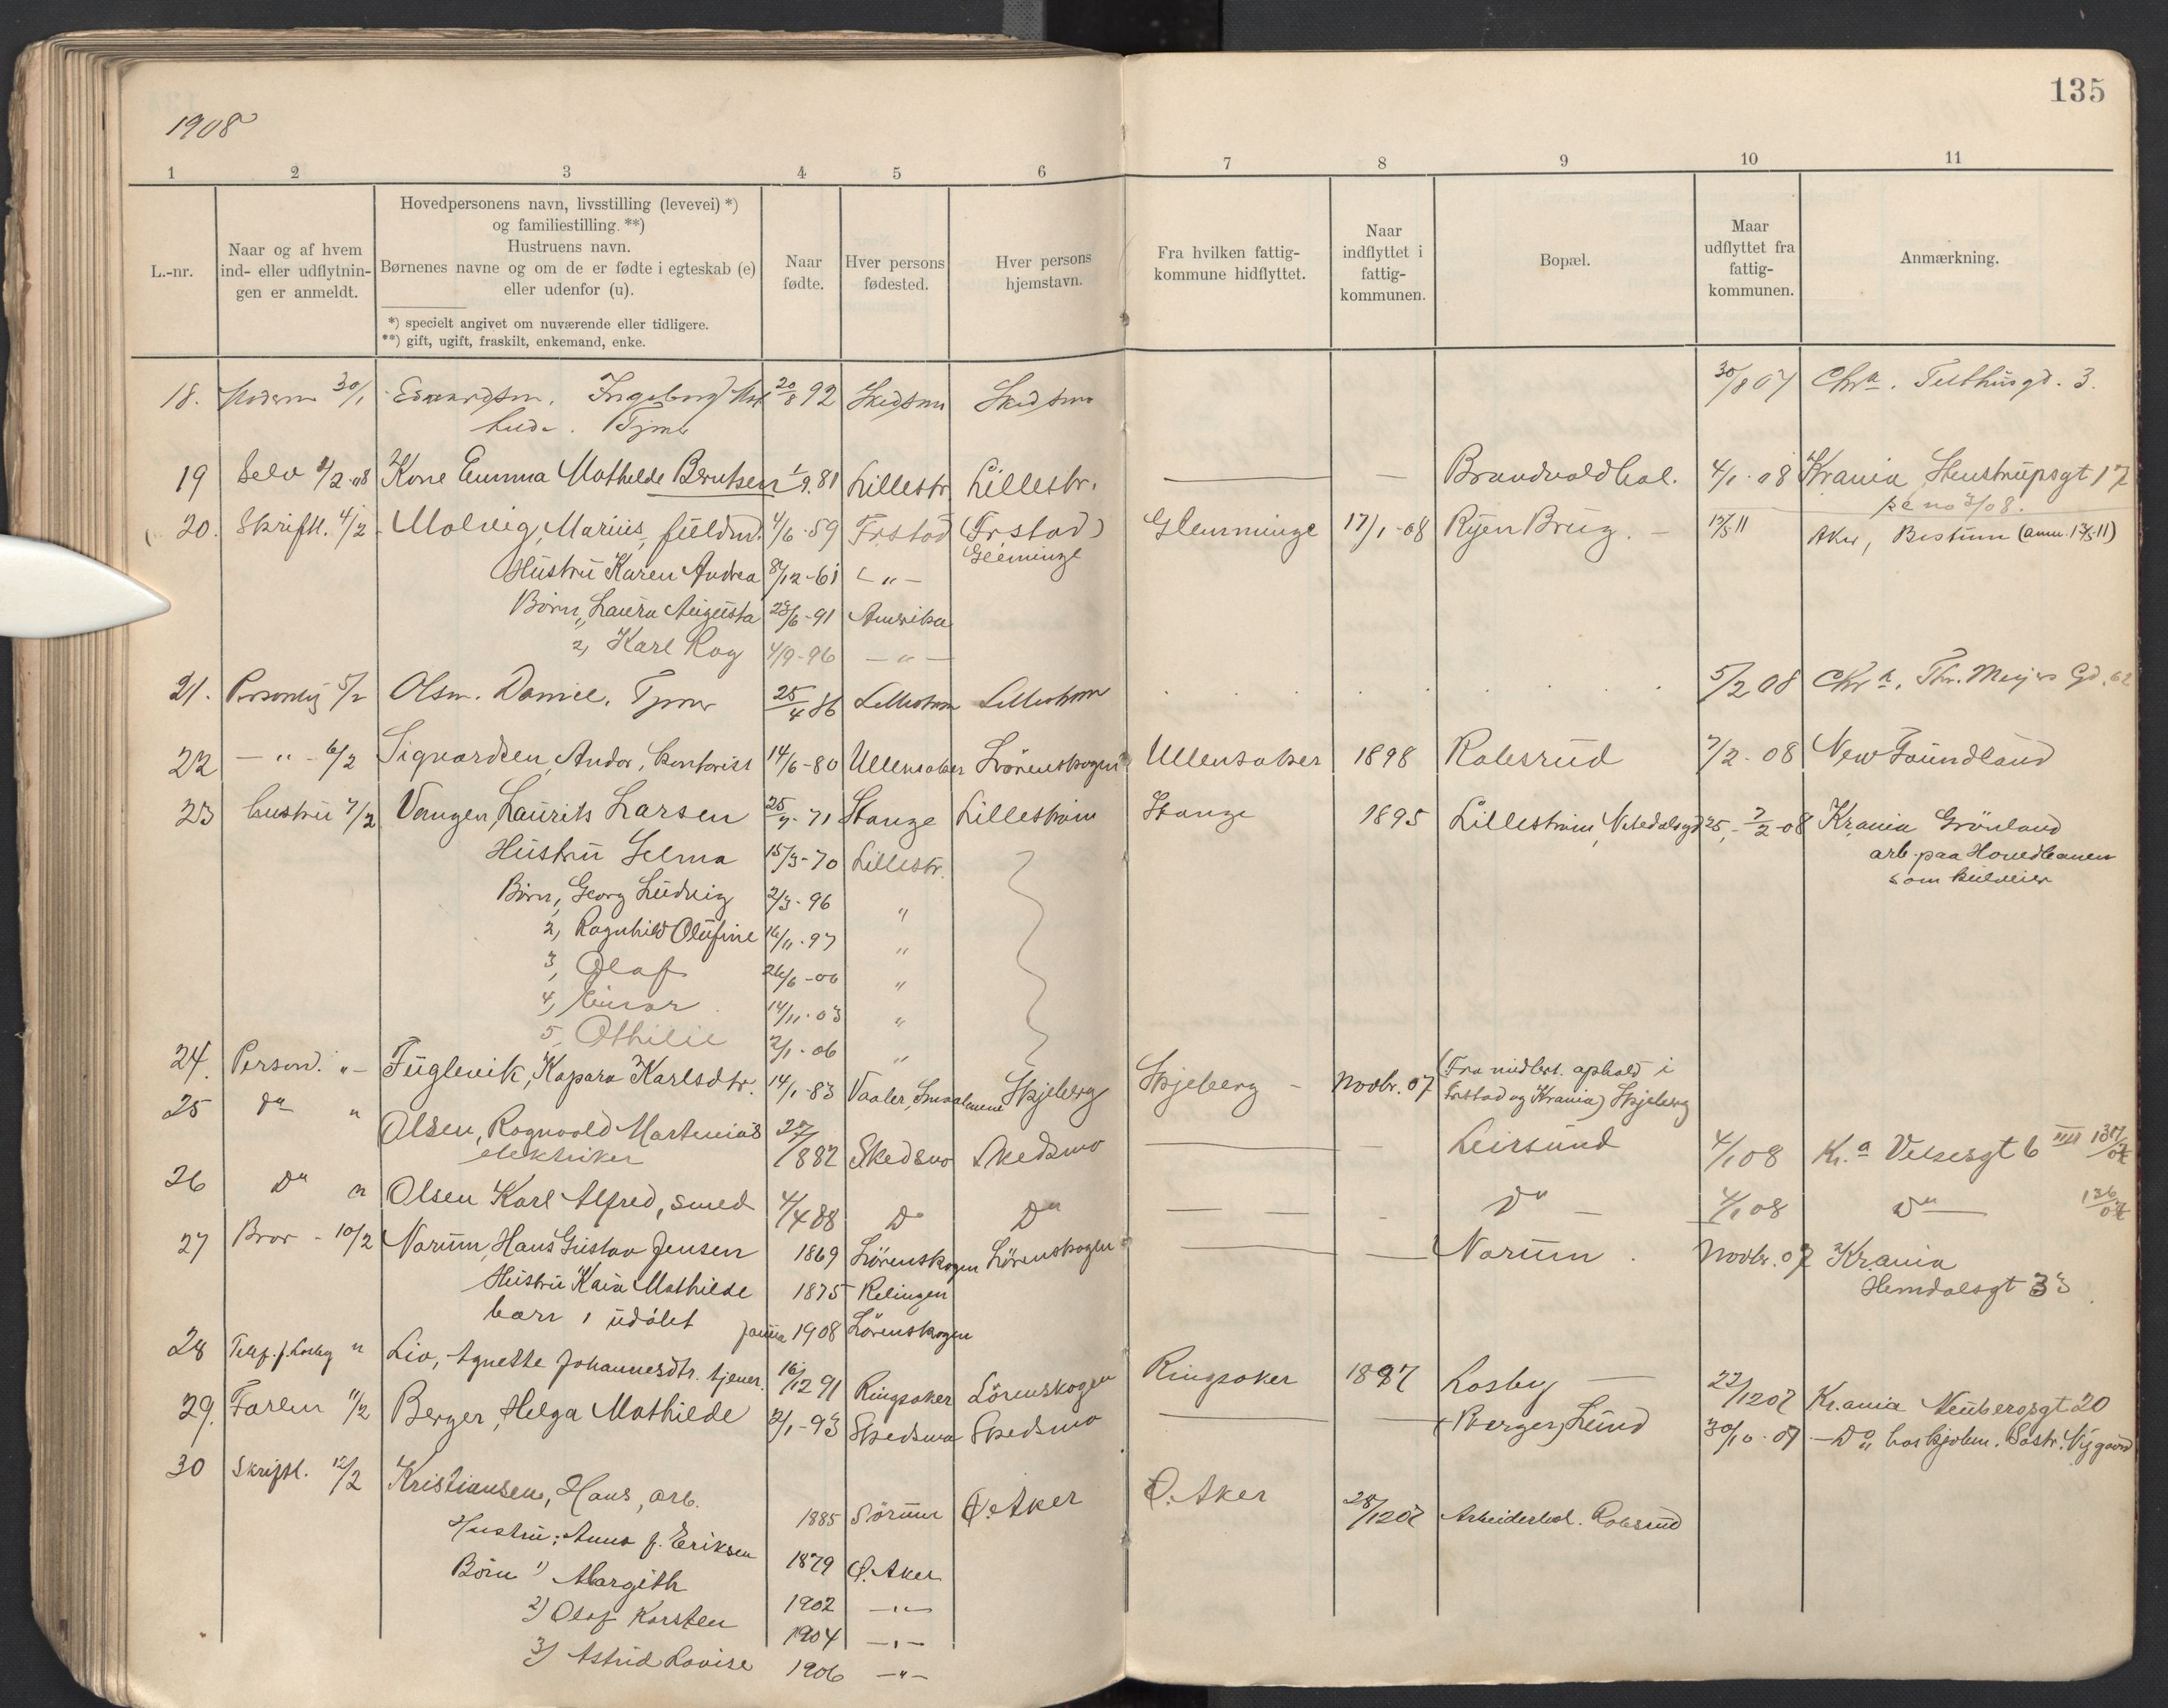 135
1908
1 2 3 4 5 6 7 8 9 10 11
L.-nr.
Naar og af hvem
ind- eller udflytnin-
gen er anmeldt.
Hovedpersonens navn, livsstilling (levevei) *)
og familiestilling. **)
Hustruens navn.
Børnenes navne og om de er fødte i egteskab (e)
eller udenfor (u).
*) specielt angivet om nuværende eller tidligere.
**) gift, ugift, fraskilt, enkemand, enke.
Naar
fødte.
Hver persons
fødested.
Hver persons
hjemstavn.
Fra hvilken fattig-
kommune hidflyttet.
Naar
indflyttet i
fattig-
kommunen.
Bopæl.
Maar
udflyttet fra
fattig-
kommunen.
Anmærkning.
18. Moderen 30/1 Ingeborg 20/8 92 Skedsmo Skedsmo 30/8 07 Chra. Tukthusgd. 3.
19 Selv 4/2 08 Kone Emma Mathilde Berntsen 1/9. 81 Lillestr. Lillestr. — — Brandvold 4/1-08 Krania Stenstrupsgt 17
20. Skriftl. 4/2 Molvig, Marius, 4/6-59 Frstad (Frstad) Glemminge 17/1-08 Ryen Brug. — Aker, Bestum
Glemminge
Hustru Karen Andrea 8/12-61 — " —
Børn, Laura Augusta 23/6-91 Amerika
2, Karl Roy 4/9-96 — " —
21. Personlig 5/2 Olsen. Daniel. Tjener 25/4 86 Lillestrøm Lillestrøm 5/2 08 Chra. Thv. Meyers Gd. 62
22 — " - 6/2 Sigvardsen, Andor, Kontorist 14/6-80 Ullensaker Lörenskogen Ullensaker 1898 Robsrud 7/2-08 New Foundland
23 hustru 7/2 Vangen, Laurits Larsen 25/7-71 Stange Lilleström Stange 1895 Lilleström, Nitedalsgd 25, - 7/2-08 Krania Grönland
arb. paa Hovedbanen
som
Hustru Gelma 15/3-70 Lillestr.
Børn, Georg Ludvig 2/3-96 "
2, Ragnhild Olufine 16/11-97 "
3, Olaf 26/6-00 "
4, Einar 14/11-03 "
5, Othilie 2/1-06 "
24. Person. " - Fuglevik, Kapara Karlsdtr. 14/1-83 Vaaler, Smaalenene Skjeberg Skjeberg - Novbr. 07 (Fra midlert. ophold i
Frstad og Krania) Skjeberg
25 Do " Olsen, Ragnvald Martenias 882 Skedsmo Skedsmo — — Leirsund 4/1 08 Kr.a
elektriker
26 Do " Olsen Karl Alfred, smed 4/4 88 Do Do — — - Do — 4/1 08 Do —
27 Bror - 10/2 Narum, Hans Gustav Jensen 1869 Lörenskogen Lörenskogen — — Narum. Novbr. 07 Krania
Hemdalsgt 33
Hustru Kaia Mathilde 1875 Relingen
barn 1 udöbt 1908 Lörenskogen
28 Telef. f. Losby " Lio, Agnethe Johannesdtr. tjener. 16/12 91 Ringsaker Lörenskogen Ringsaker 1897 Losby — 22/12 07 Kr.ania Neubergsgt 20
29. Farlen 11/2 Berger, Helga Mathilde 2/1-93 Skedsmo Skedsmo — — (Berger) Lund 30/10-07 — Do
30 Skriftl. 12/2 Kristiansen, Hans, arb. 1885 Sörum Ö. Aker Ö. Aker 28/12 07 Arbeiderbol. Robsrud
Hustru: Anna f. Eriksen 1879 Ö. Aker
Börn 1) Margith 1902 — " —
2) Olaf Karsten 1904 — " —
3) Astrid Lovise 1906 — " —